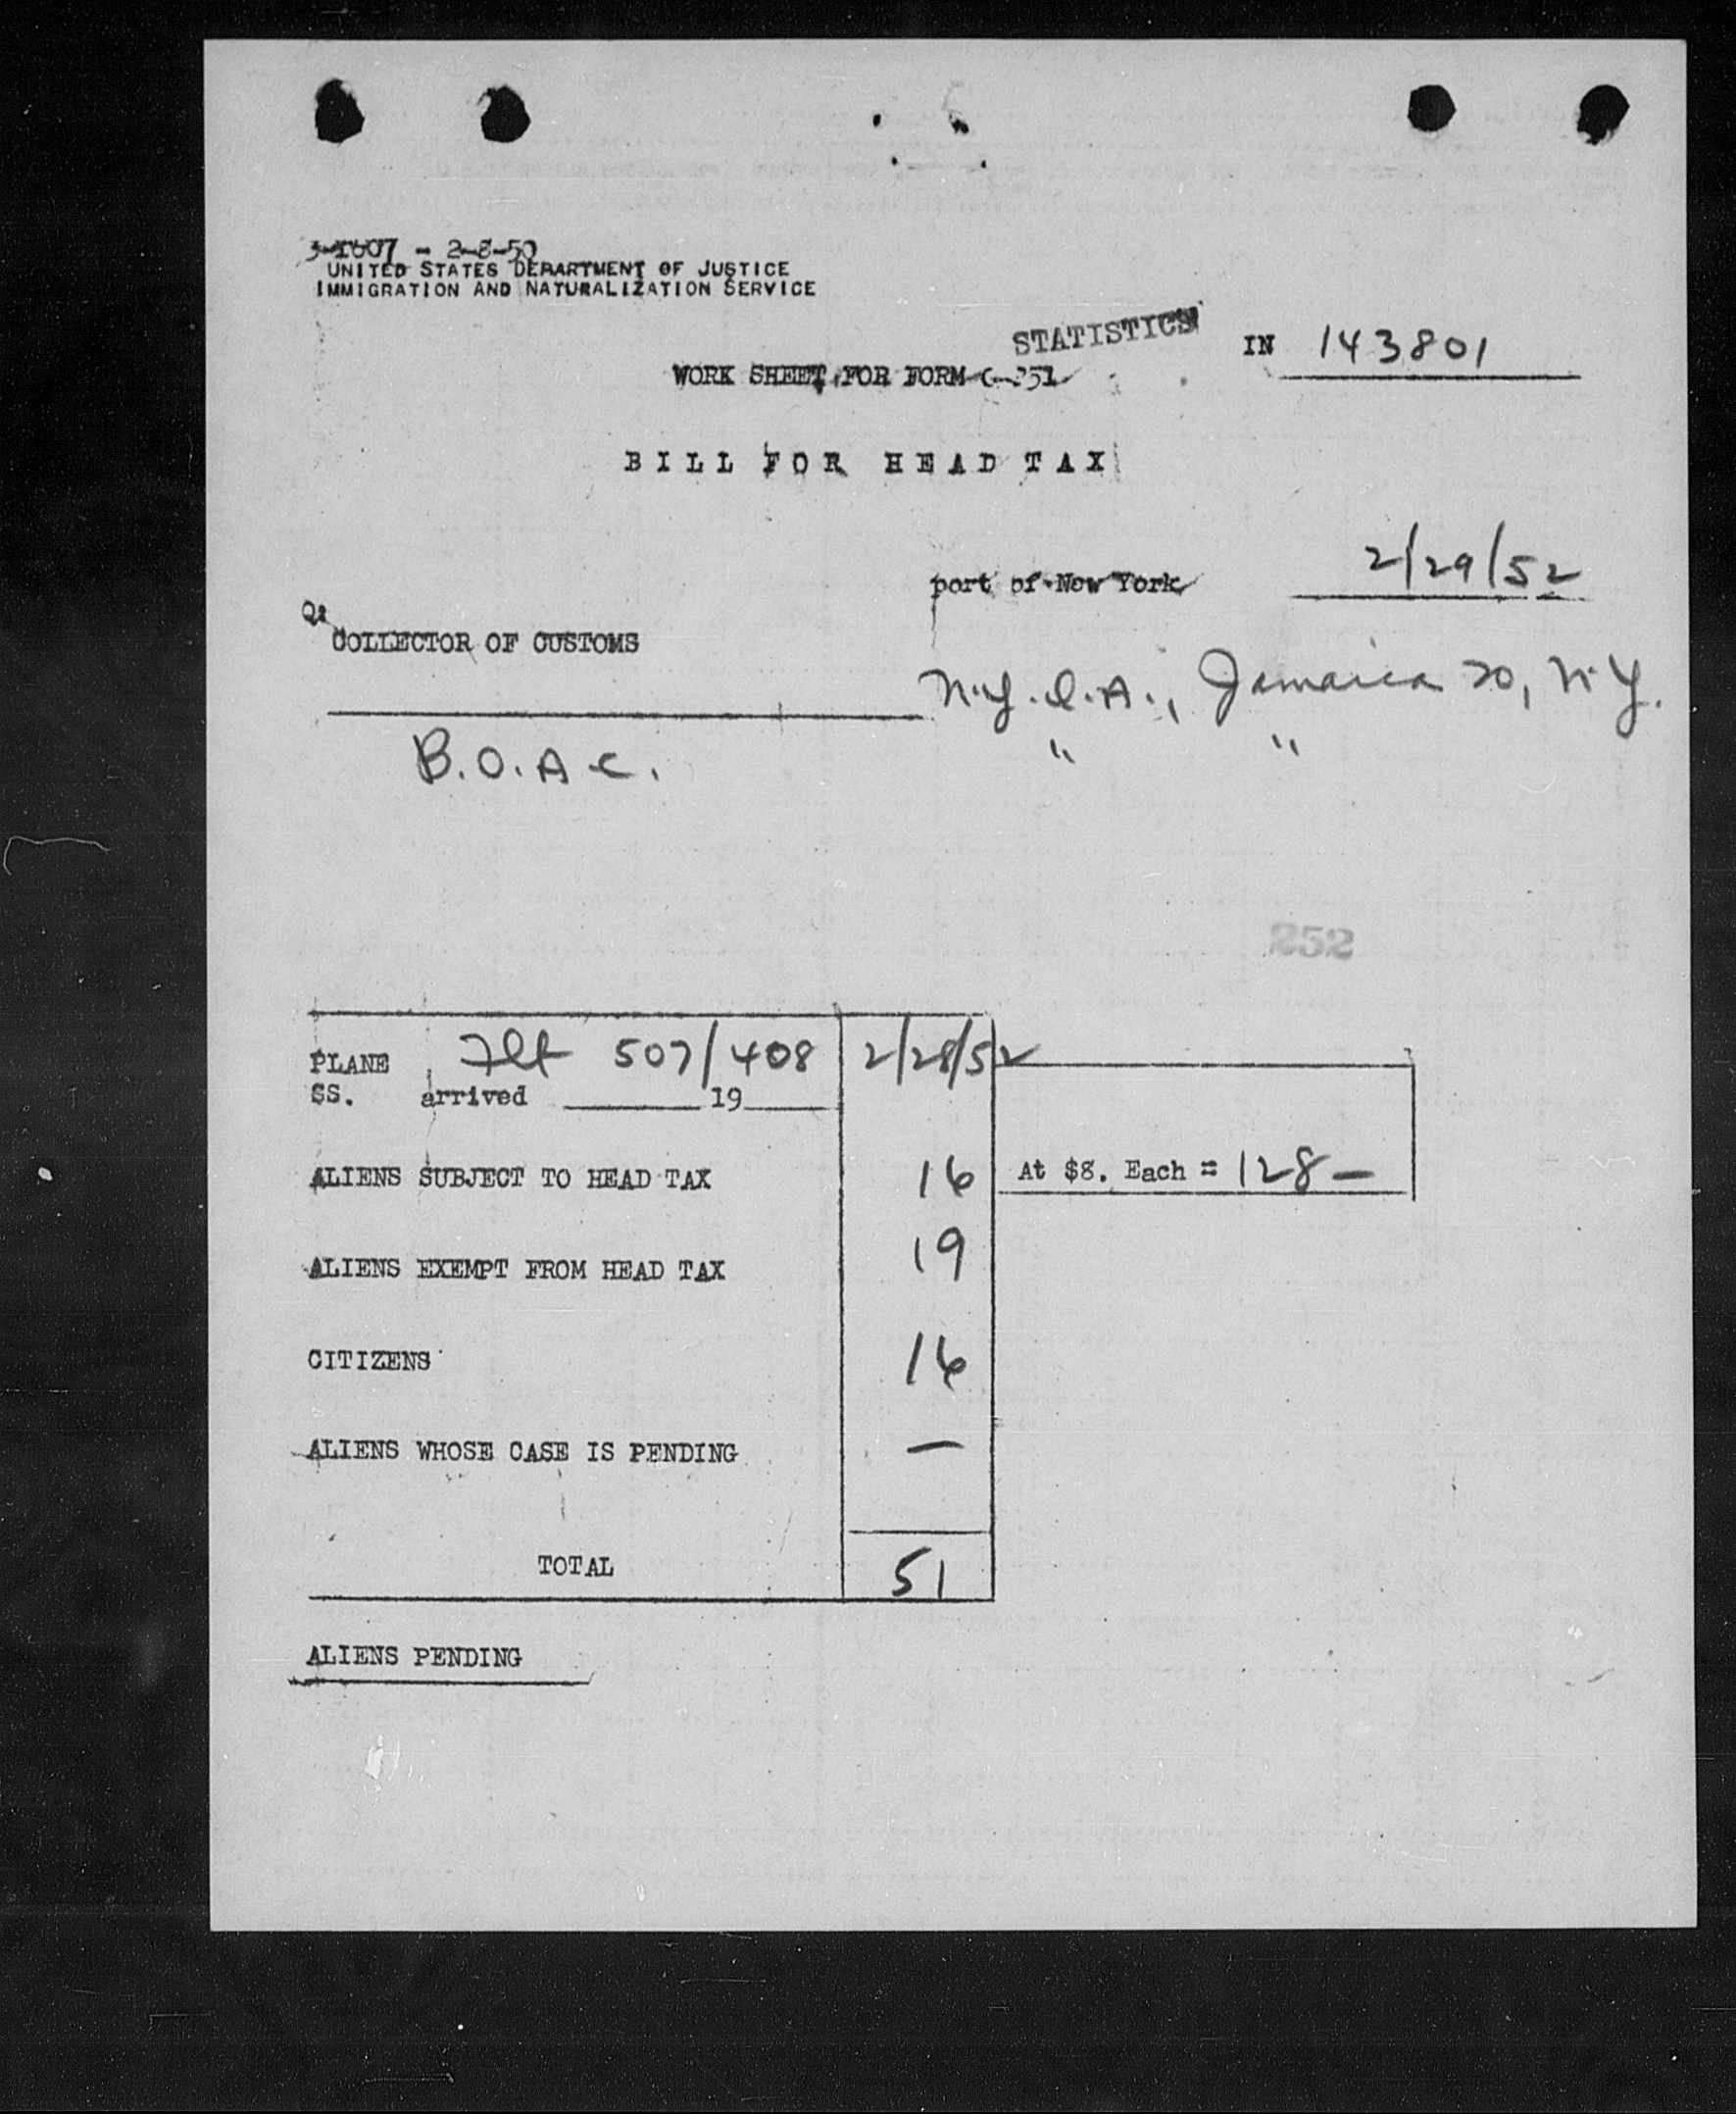 3-1607 - 2-8-50
UNITED STATES DEPARTMENT OF JUSTICE
IMMIGRATION AND NATURALIZATION SERVICE
STATISTICS
IN 143801
WORK SHEET FOR FORM G-251
BILL FOR HEAD TAX
port of New York 2/29/52
COLLECTOR OF CUSTOMS
N.Y.I.A., Jamaica 30, N.Y.
B.O.A.C. " "
252
PLANE Flt 507/408 2/28/52
SS. arrived 19
ALIENS SUBJECT TO HEAD TAX 16 At $8. Each = 128 —
ALIENS EXEMPT FROM HEAD TAX 19
CITIZENS 16
ALIENS WHOSE CASE IS PENDING —
TOTAL 51
ALIENS PENDING